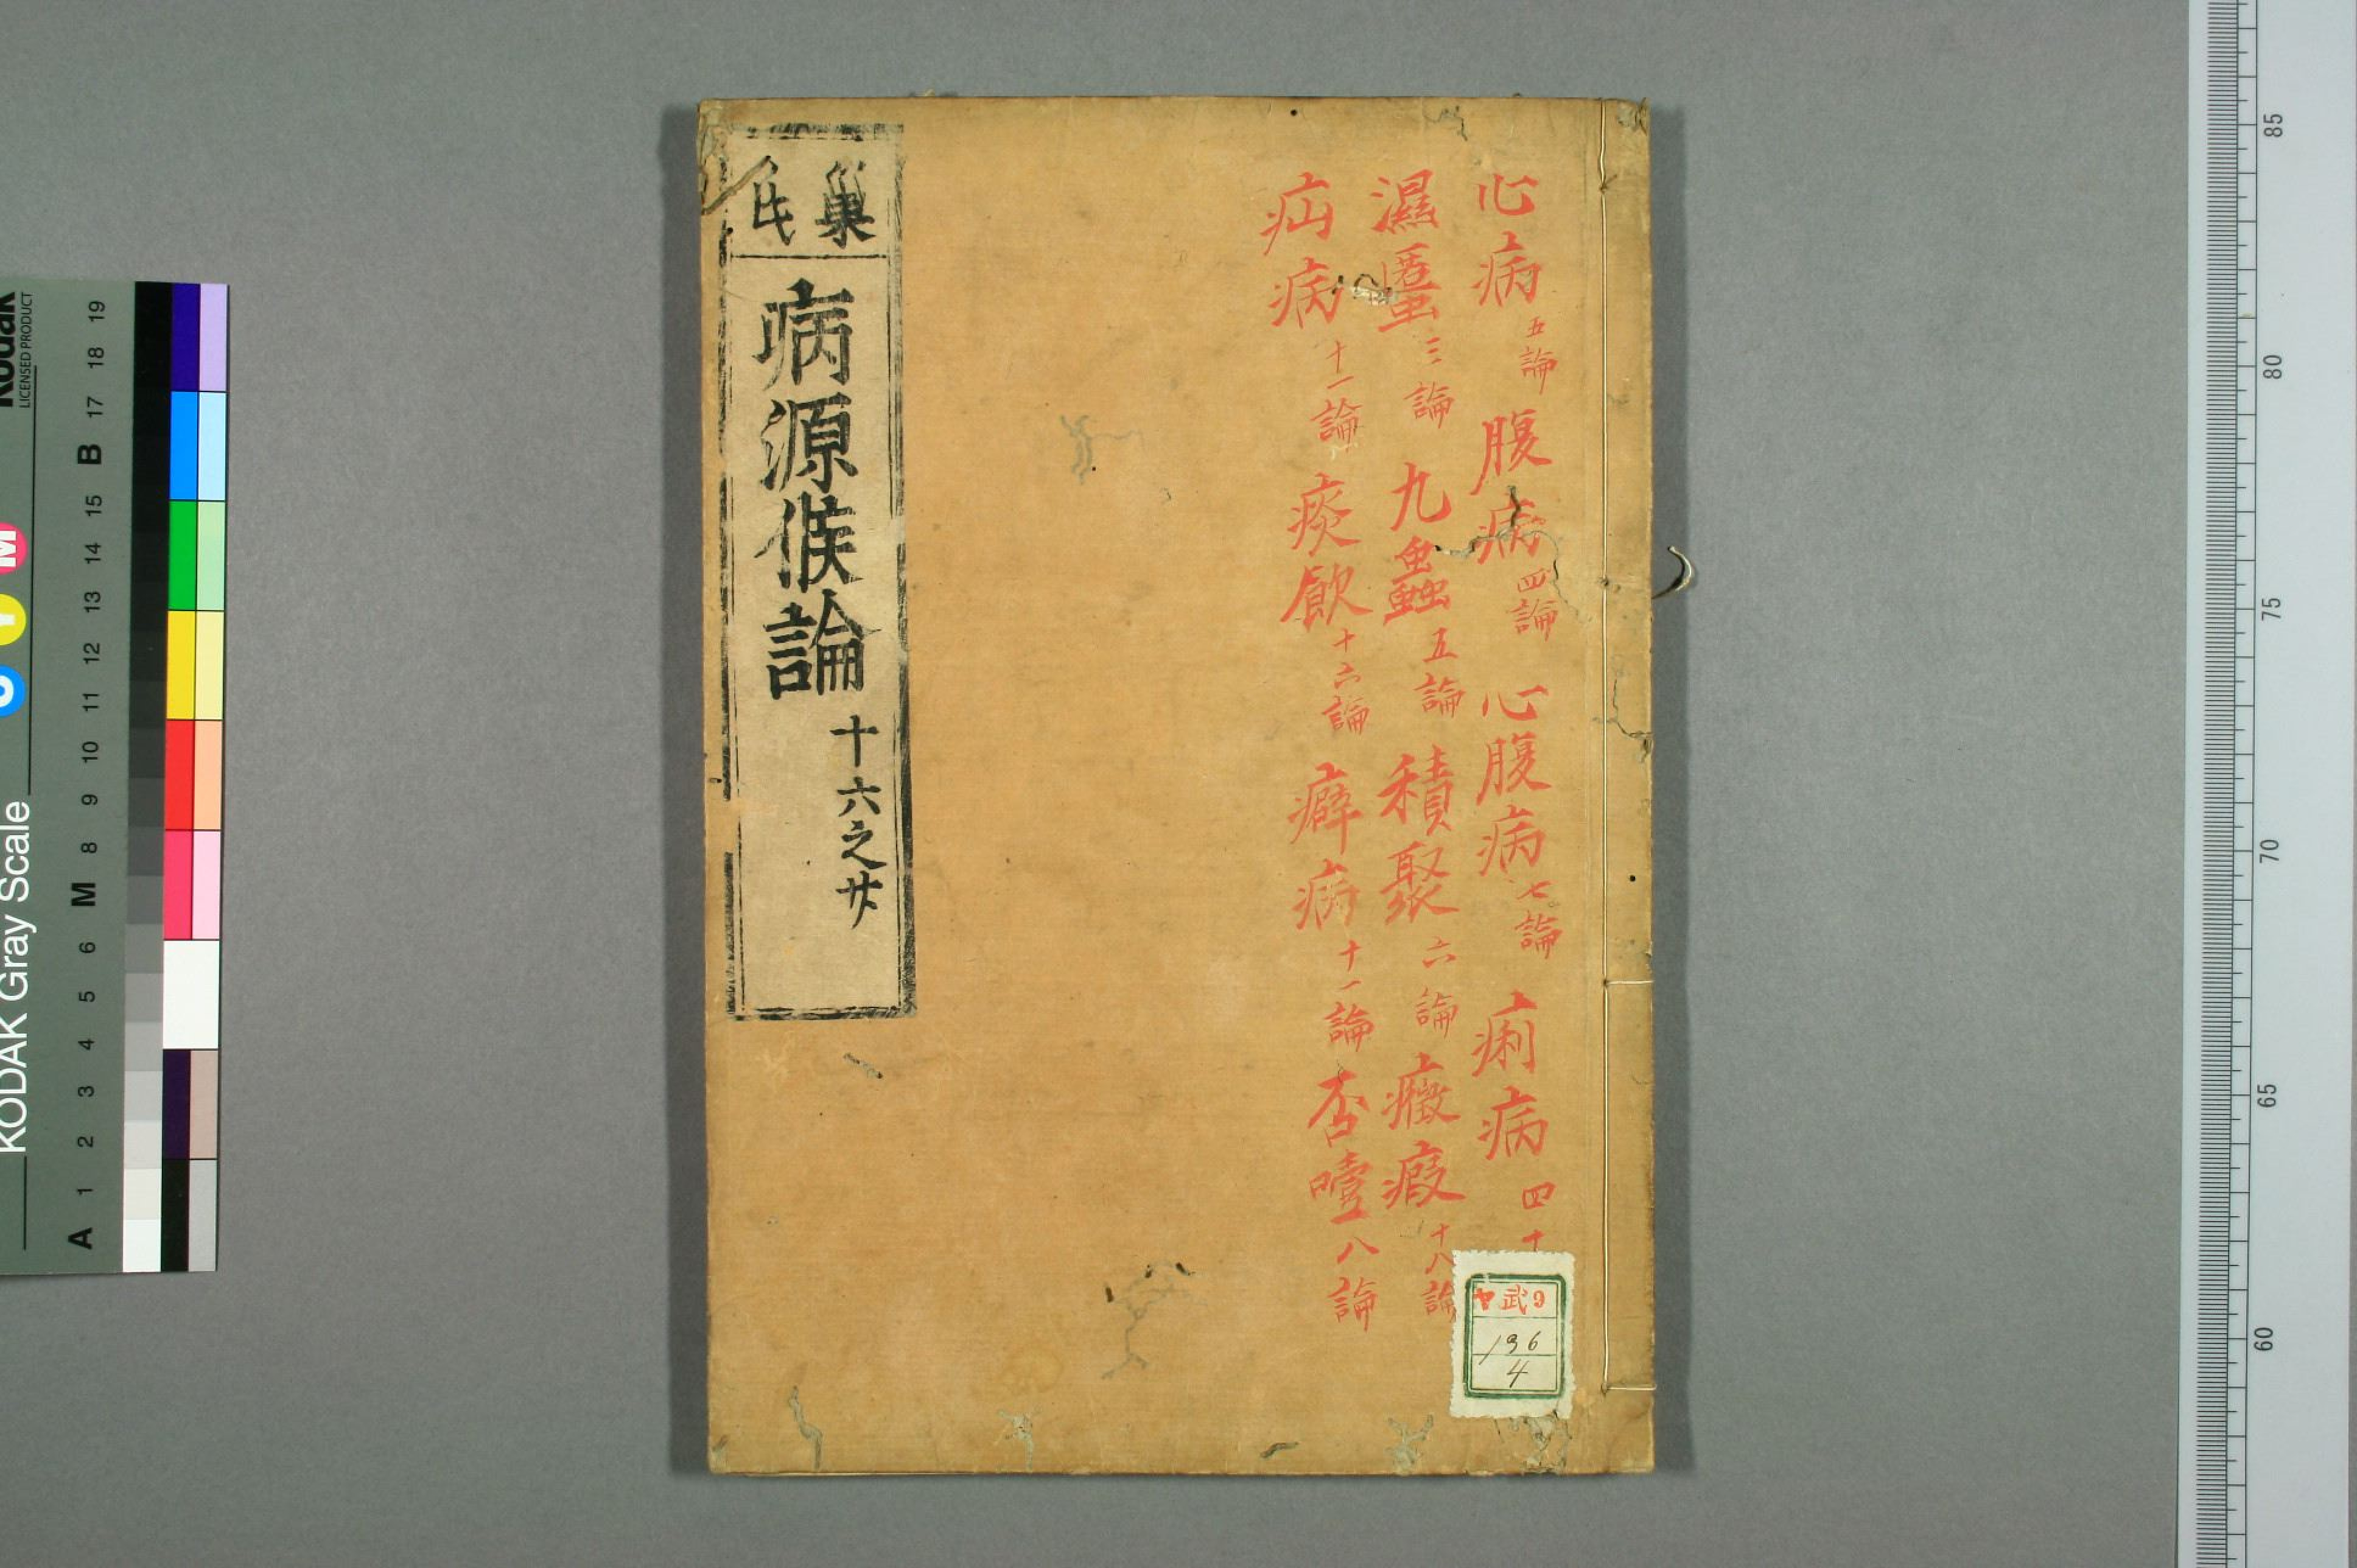 心病 五論 腹病 四論 心腹病 七論 痢病 四十
濕䘌 三論 九蟲 五論 積聚 六論 癥瘕 十八論
疝病 十一論 痰飲 十六論 癖病 十一論 否噎 八論
巢氏
病源候論 十六之廿
ヤ武9
196
4
Kodak
LICENSED PRODUCT
KODAK Gray Scale
C Y M
A 1 2 3 4 5 6 M 8 9 10 11 12 13 14 15 B 17 18 19
85
80
75
70
65
60